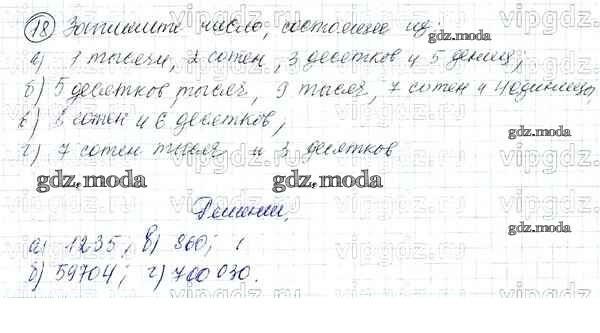 18) Запишите число, состоящее из:
а) 1 тысячи, 2 сотен, 3 десятков и 5 единиц;
б) 5 десятков тысяч, 9 тысяч, 7 сотен и 4 единиц;
в) 8 сотен и 6 десятков;
г) 7 сотен тысяч и 3 десятков
gdz.moda gdz.moda
Решение.
а) 1235; в) 860;
б) 59704; г) 700 030.